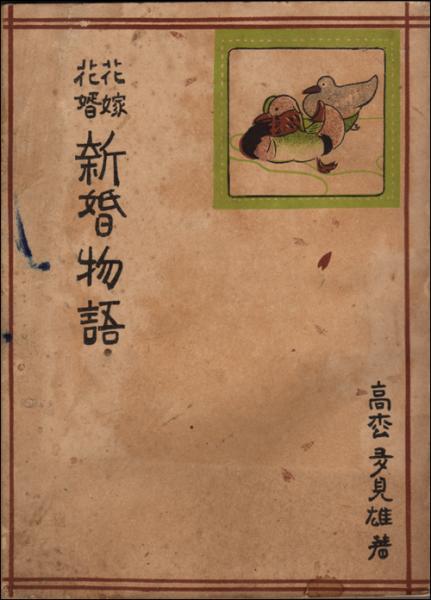 花嫁
花婿
新婚物語
高枩多見雄著